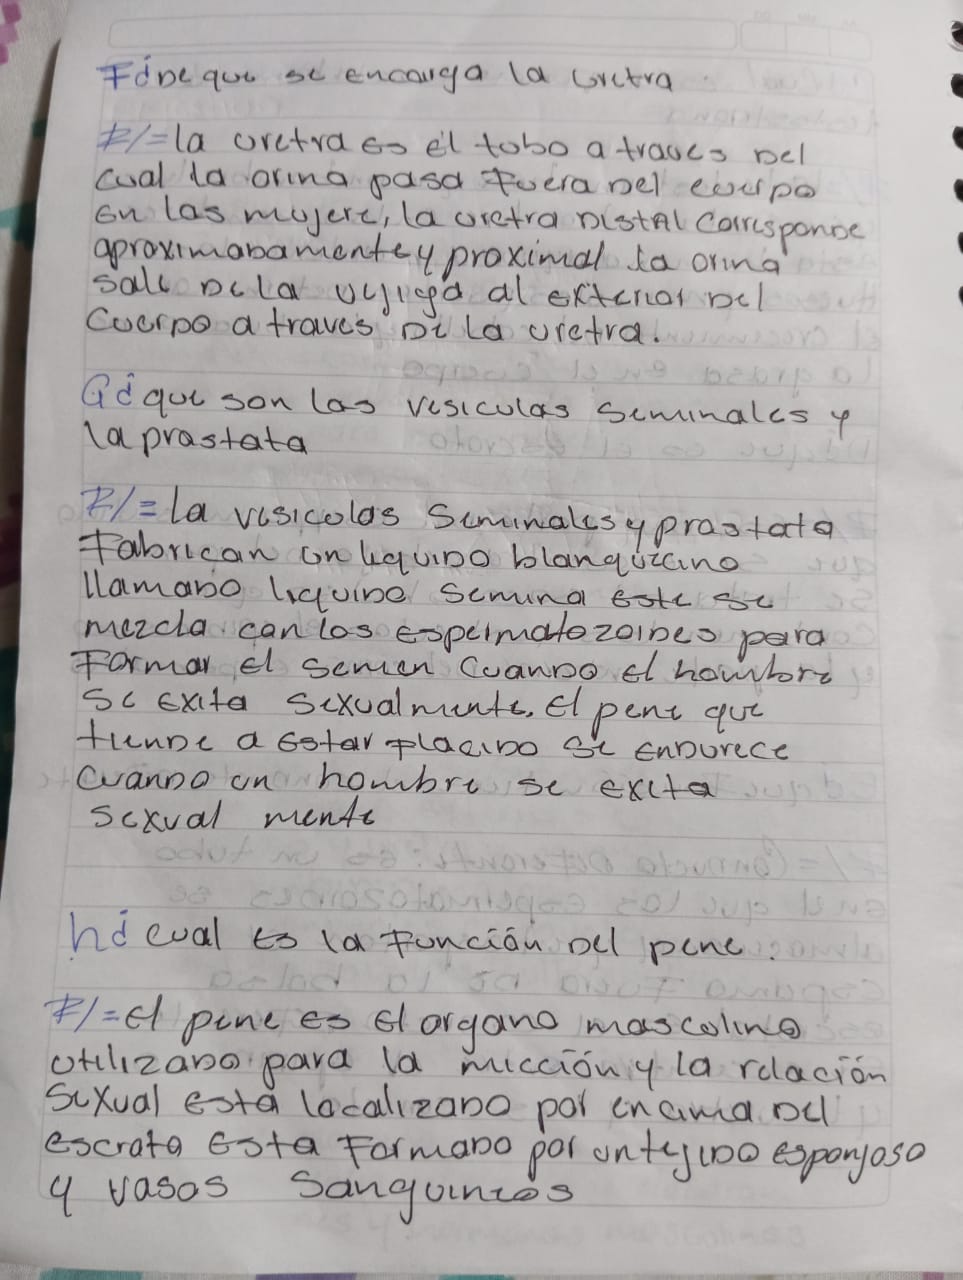 F¿De que se encarga la uretra
R/= la uretra es el tubo a traves Del
cual la orina pasa Fuera Del cuerpo
en las mujere, la uretra DistAl corresponde
aproximadamente y proximal la orina
sale De la vejiga al exterior Del
cuerpo a traves De la uretra.
G¿que son las vesiculas seminales y
la prastata
R/= La vesicolas seminales y prastata
Fabrican un liquido blanquizcino
llamado liquido semina este se
mezcla con los espermatozoides para
Formar el semen cuando el hombre
se exita sexualmente. El pene que
tiende a estar Flacido se endurece
cuando un hombre se exita
sexual mente
h¿cual es la Función Del pene?
R/= El pene es el organo mascolino
utilizado para la micción y la relación
sexual esta localizado por encima Del
escrato esta Formado por un tejido esponjoso
y vasos sanguineos